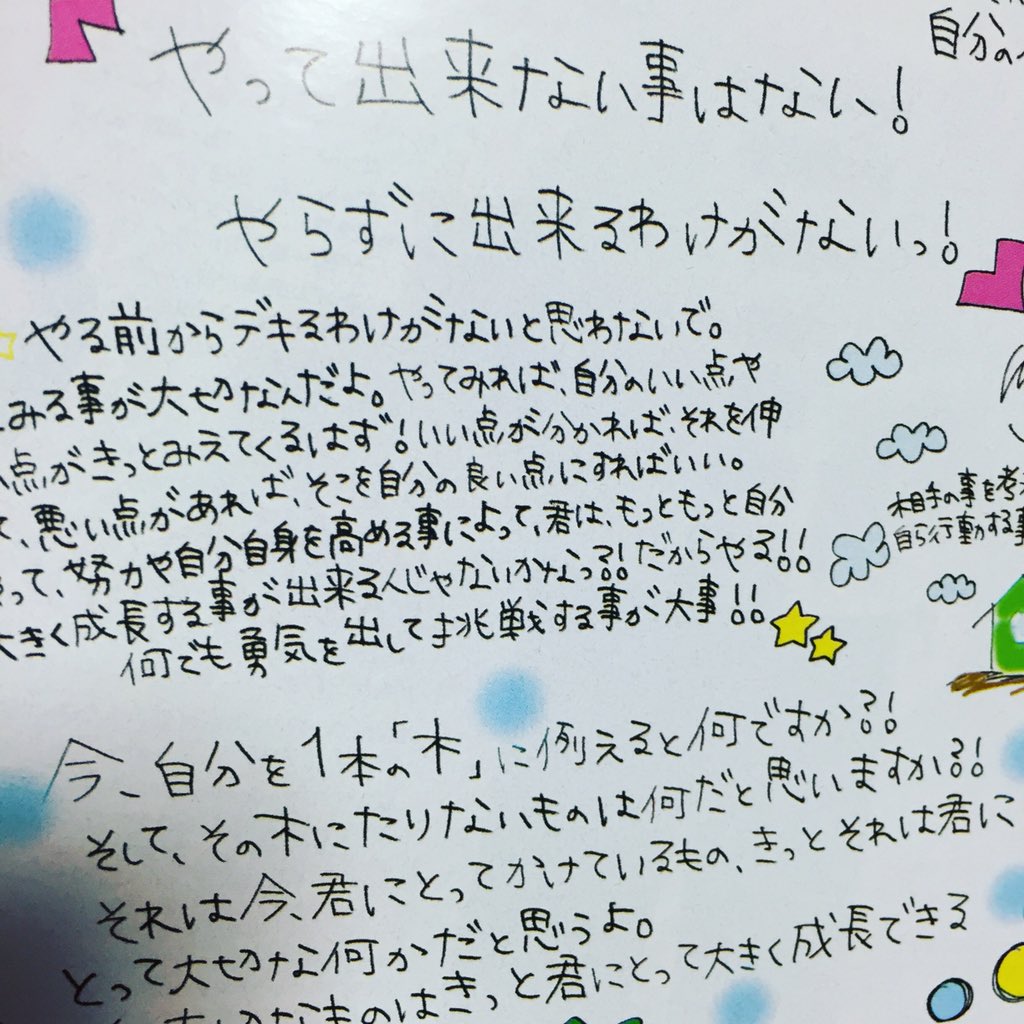 やって出来ない事はない!
自分の
やらずに出来るわけがないっ!
やる前からデキるわけがないと思わないで。
みる事が大切なんだよ。やってみれば、自分のいい点や
点がきっとみえてくるはず!いい点が分かれば、それを伸
て、悪い点があれば、そこを自分の良い点にすればいい。
って、努力や自分自身を高める事によって、君は、もっともっと自分
大きく成長する事が出来る人じゃないかなっ?!だからやる!!
何でも勇気を出して挑戦する事が大事!!
相手の事を考
自ら行動する事
今、自分を1本の「木」に例えると何ですか?!
そして、その木にたりないものは何だと思いますか?!
それは今、君にとってかけているもの、きっとそれは君に
とって大切な何かだと思うよ。
大切なものはきっと君にとって大きく成長できる